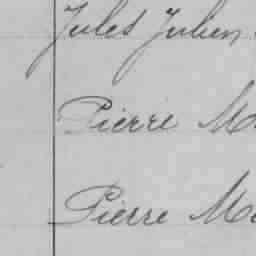 Jules Julien
Pierre
Pierre